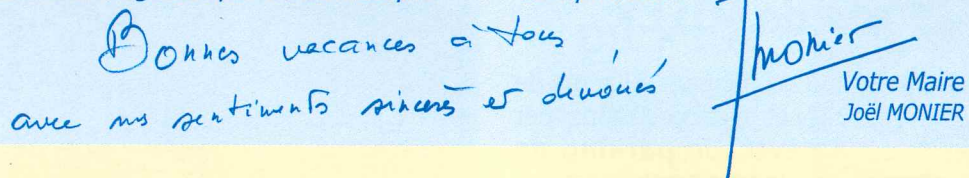 Bonnes vacances à tous
avec nos sentiments sincères et dévoués
Monier
Votre Maire
Joël MONIER